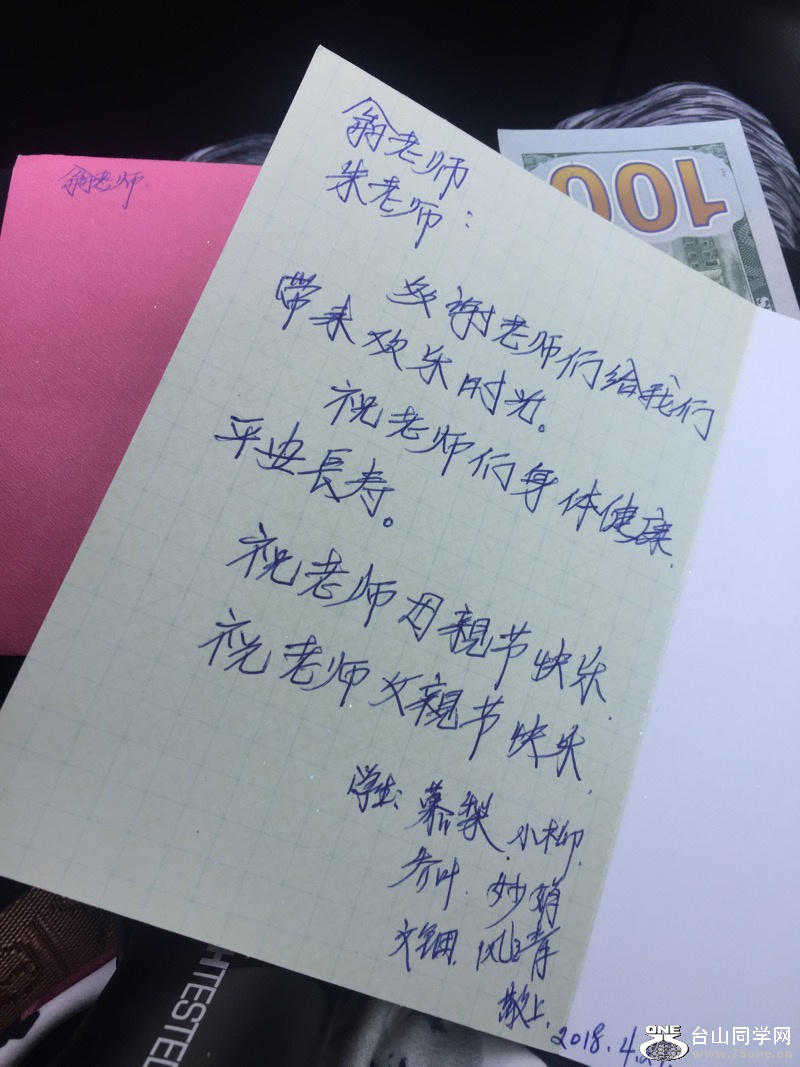 翁老师
朱老师：
多谢老师们给我们
带来欢乐时光。
祝老师们身体健康.
平安長寿。
祝老师母親节快乐.
祝老师父親节快乐.
学生: 慕梨. 小柳.
叶. 妙娟
文钿. 风青
敬上.
2018.4.
翁老师.
100
HTESTED
ONE
台山同学网
www.75one.cn